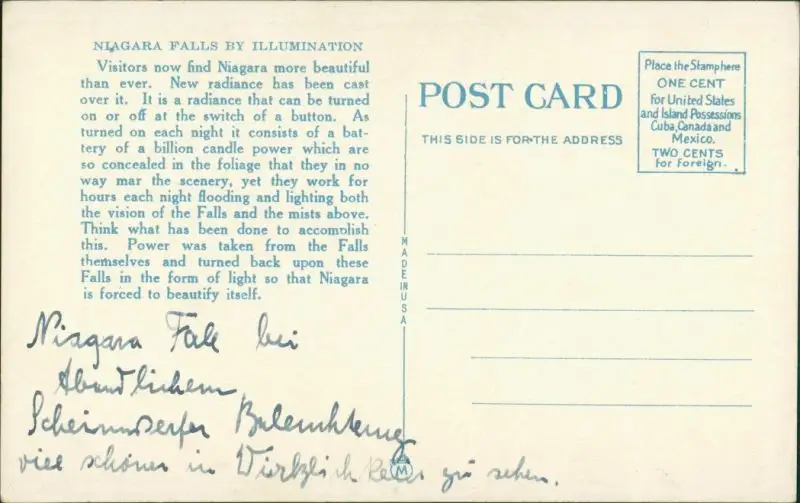 NIAGARA FALLS BY ILLUMINATION
Visitors now find Niagara more beautiful
than ever. New radiance has been cast
over it. It is a radiance that can be turned
on or off at the switch of a button. As
turned on each night it consists of a bat-
tery of a billion candle power which are
so concealed in the foliage that they in no
way mar the scenery, yet they work for
hours each night flooding and lighting both
the vision of the Falls and the mists above.
Think what has been done to accomplish
this. Power was taken from the Falls
themselves and turned back upon these
Falls in the form of light so that Niagara
is forced to beautify itself.
Niagara Fall bei
Abendlichem
Scheinwerfer Beleuchtung
viel schöner in Wirklichkeit zu sehen.
MADE IN USA
M
POST CARD
THIS SIDE IS FOR THE ADDRESS
Place the Stamp here
ONE CENT
for United States
and Island Possessions
Cuba, Canada and
Mexico.
TWO CENTS
for Foreign.